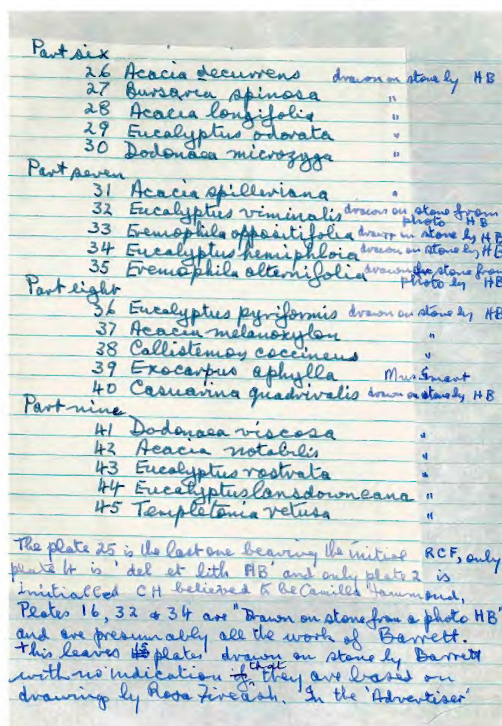 Part six
26 Acacia decurrens drawn on stone by HB
27 Bursaria spinosa "
28 Acacia longifolia "
29 Eucalyptus odorata "
30 Dodonaea microzyga "
Part seven
31 Acacia spilleriana "
32 Eucalyptus viminalis drawn on stone from photo HB
33 Eremophila oppositifolia drawn on stone by HB
34 Eucalyptus hemiphloia drawn on stone by HB
35 Eremophila alternifolia drawn on stone from photo by HB
Part eight
36 Eucalyptus pyriformis drawn on stone by HB
37 Acacia melanoxylon "
38 Callistemon coccineus "
39 Exocarpus aphylla Mrs Smart
40 Casuarina quadrivalis drawn on stone by HB
Part nine
41 Dodonaea viscosa "
42 Acacia notabilis "
43 Eucalyptus rostrata "
44 Eucalyptus lansdowneana "
45 Templetonia retusa "
The plate 25 is the last one bearing the initial RCF, only
plate 4 is 'del et lith HB' and only plate 2 is
initialled CH believed to be Camilla Hammond.
Plates 16, 32 & 34 are "Drawn on stone from a photo HB"
and are presumably all the work of Barrett.
This leaves plates drawn on stone by Barrett
with no indication that they are based on
drawing by Rosa Fiveash. In the 'Advertiser'